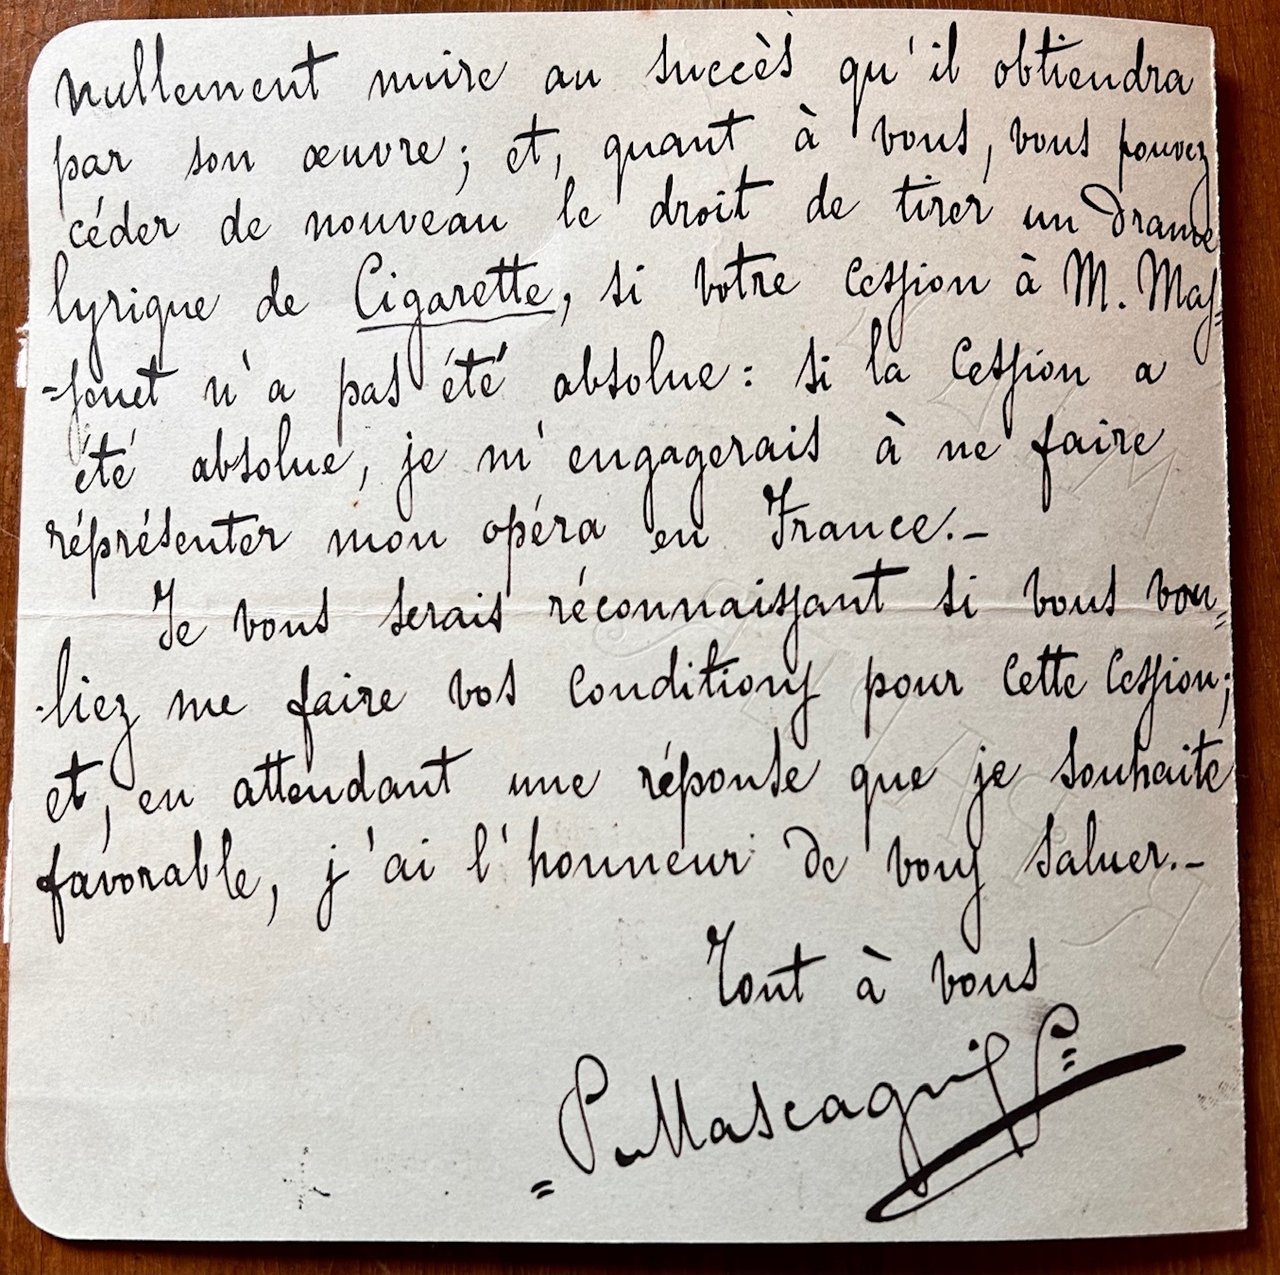 nullement nuire au succès qu'il obtiendra
par son œuvre; et, quant à vous, vous pouvez
céder de nouveau le droit de tirer un drame
lyrique de Cigarette, si votre cession à M. Mas=
=senet n'a pas été absolue: si la cession a
été absolue, je m'engagerais à ne faire
réprésenter mon opéra en France.—
Je vous serais réconnaissant si vous vou=
-liez me faire vos conditions pour cette cession;
et, en attendant une réponse que je souhaite
favorable, j'ai l'honneur de vous saluer.—
Tout à vous
=P. Mascagni=